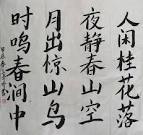 人闲桂花落
夜静春山空
月出惊山鸟
时鸣春间中